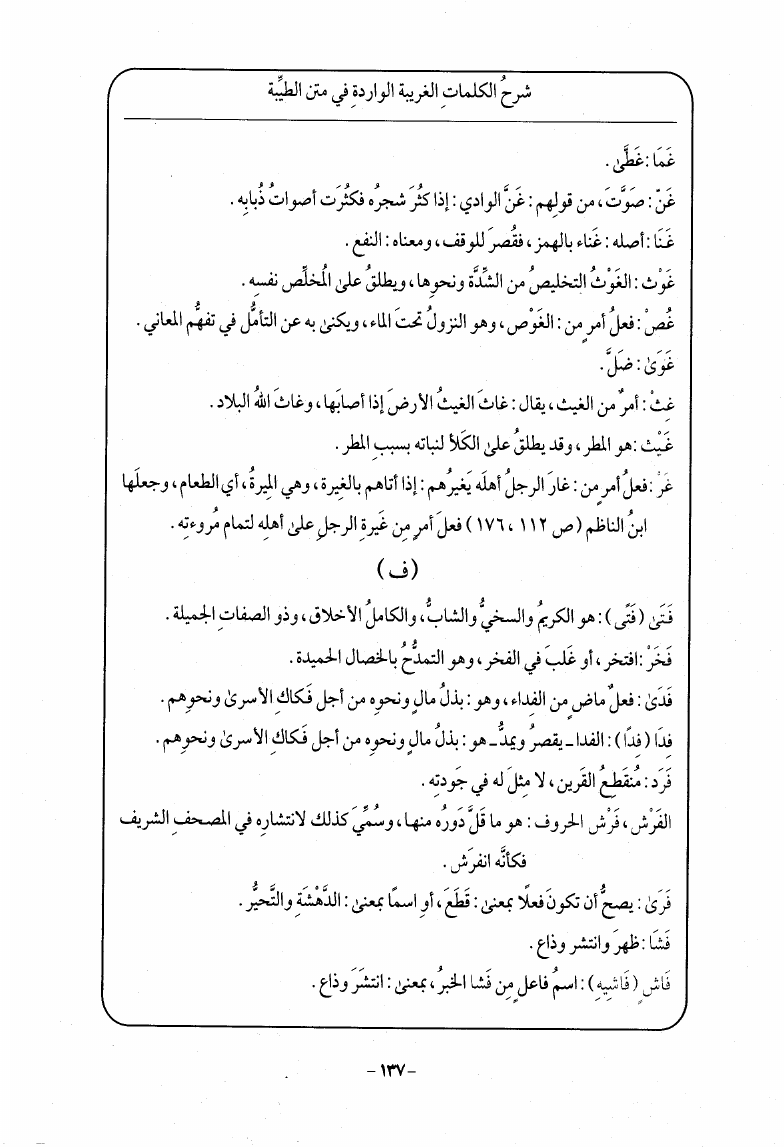 شرحُ الكلماتِ الغريبة الواردةِ في متن الطيِّبة
غَمَا: غَطَّىٰ.
غَنّ: صَوَّتَ، من قولهم: غَنَّ الوادي: إذا كثُرَ شجرُه فكثُرَت أصواتُ ذُبابِه.
غَنَا: أصله: غَناء بالهمز، فقُصرَ للوقف، ومعناه: النفع.
غَوْث: الغَوْثُ التخليصُ من الشِّدَّة ونحوِها، ويطلقُ علىٰ المُخلِّص نفسِه.
غُصْ: فعلُ أمرٍ من: الغَوْص، وهو النزولُ تحتَ الماء، ويكنىٰ به عن التأمُّل في تفهُّم المعاني.
غَوَىٰ: ضَلَّ.
غِثْ: أمرٌ من الغيث، يقال: غاثَ الغيثُ الأرضَ إذا أصابَها، وغاثَ اللهُ البلاد.
غَيْث: هو المطر، وقد يطلقُ علىٰ الكَلأ لنباته بسببِ المطر.
غَرْ: فعلُ أمرٍ من: غارَ الرجلُ أهلَه يَغيرُهم: إذا أتاهم بالغِيرة، وهي المِيرةُ، أي الطعام، وجعلَها
ابنُ الناظم (ص ١١٢، ١٧٦) فعلَ أمرٍ مِن غَيرةِ الرجلِ علىٰ أهلِه لتمام مُروءتِه.
(ف)
فَتَىٰ (فَتًى): هو الكريمُ والسخيُّ والشابُّ، والكاملُ الأخلاق، وذو الصفاتِ الجميلة.
فَخَرْ: افتخر، أو غَلبَ في الفخر، وهو التمدُّحُ بالخصال الحميدة.
فَدَىٰ: فعلٌ ماضٍ من الفِداء، وهو: بذلُ مالٍ ونحوِه من أجل فَكاكِ الأسرىٰ ونحوِهم.
فِدَا (فِدًا): الفدا ـ يقصرُ ويمدُّ ـ هو: بذلُ مالٍ ونحوِه من أجل فَكاكِ الأسرىٰ ونحوِهم.
فَرَد: مُنقَطِعُ القَرين، لا مِثلَ له في جَودتِه.
الفَرْش، فَرْش الحروف: هو ما قَلَّ دَورُه منها، وسُمِّيَ كذلك لانتشارِه في المصحفِ الشريف
فكأنَّه انفرَش.
فَرَىٰ: يصحُّ أن تكونَ فعلًا بمعنىٰ: قَطَعَ، أو اسمًا بمعنىٰ: الدَّهْشَةِ والتَّحيُّر.
فَشَا: ظهرَ وانتشر وذاع.
فَاشٍ (فَاشِيهِ): اسمُ فاعلٍ مِن فَشا الخبرُ، بمعنىٰ: انتشَرَ وذاع.
- ١٣٧ -